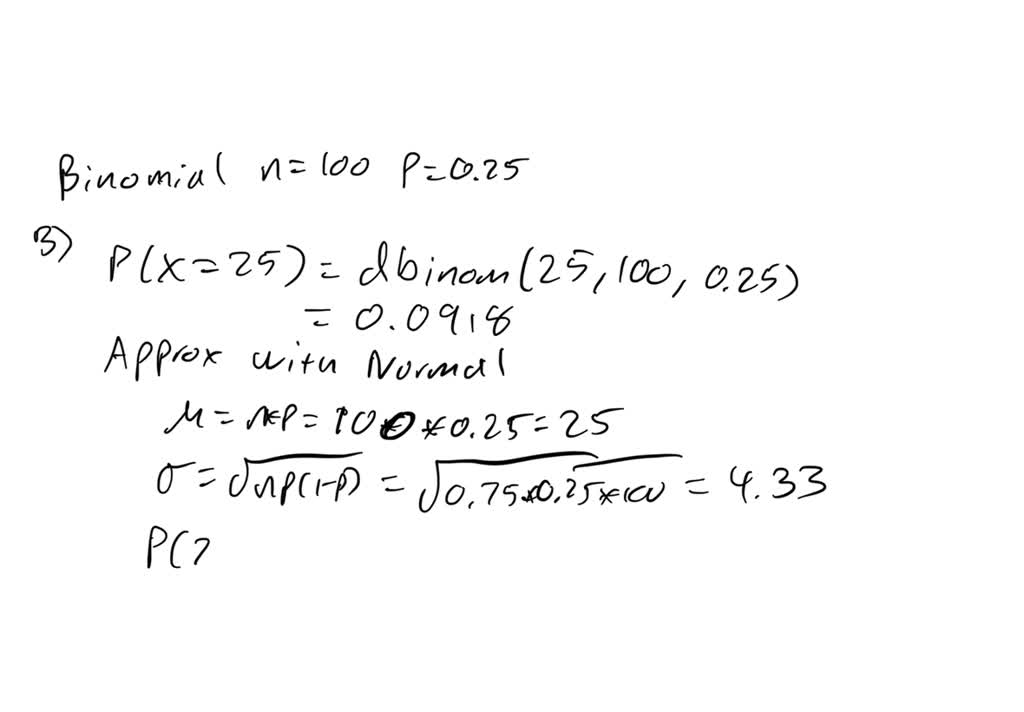 Binomial n=100 p=0.25
3) P(X=25) = dbinom(25,100,0.25)
= 0.0918
Approx with Normal
μ = n*p = 100 * 0.25 = 25
σ = √np(1-p) = √0.75*0.25*100 = 4.33
P(2